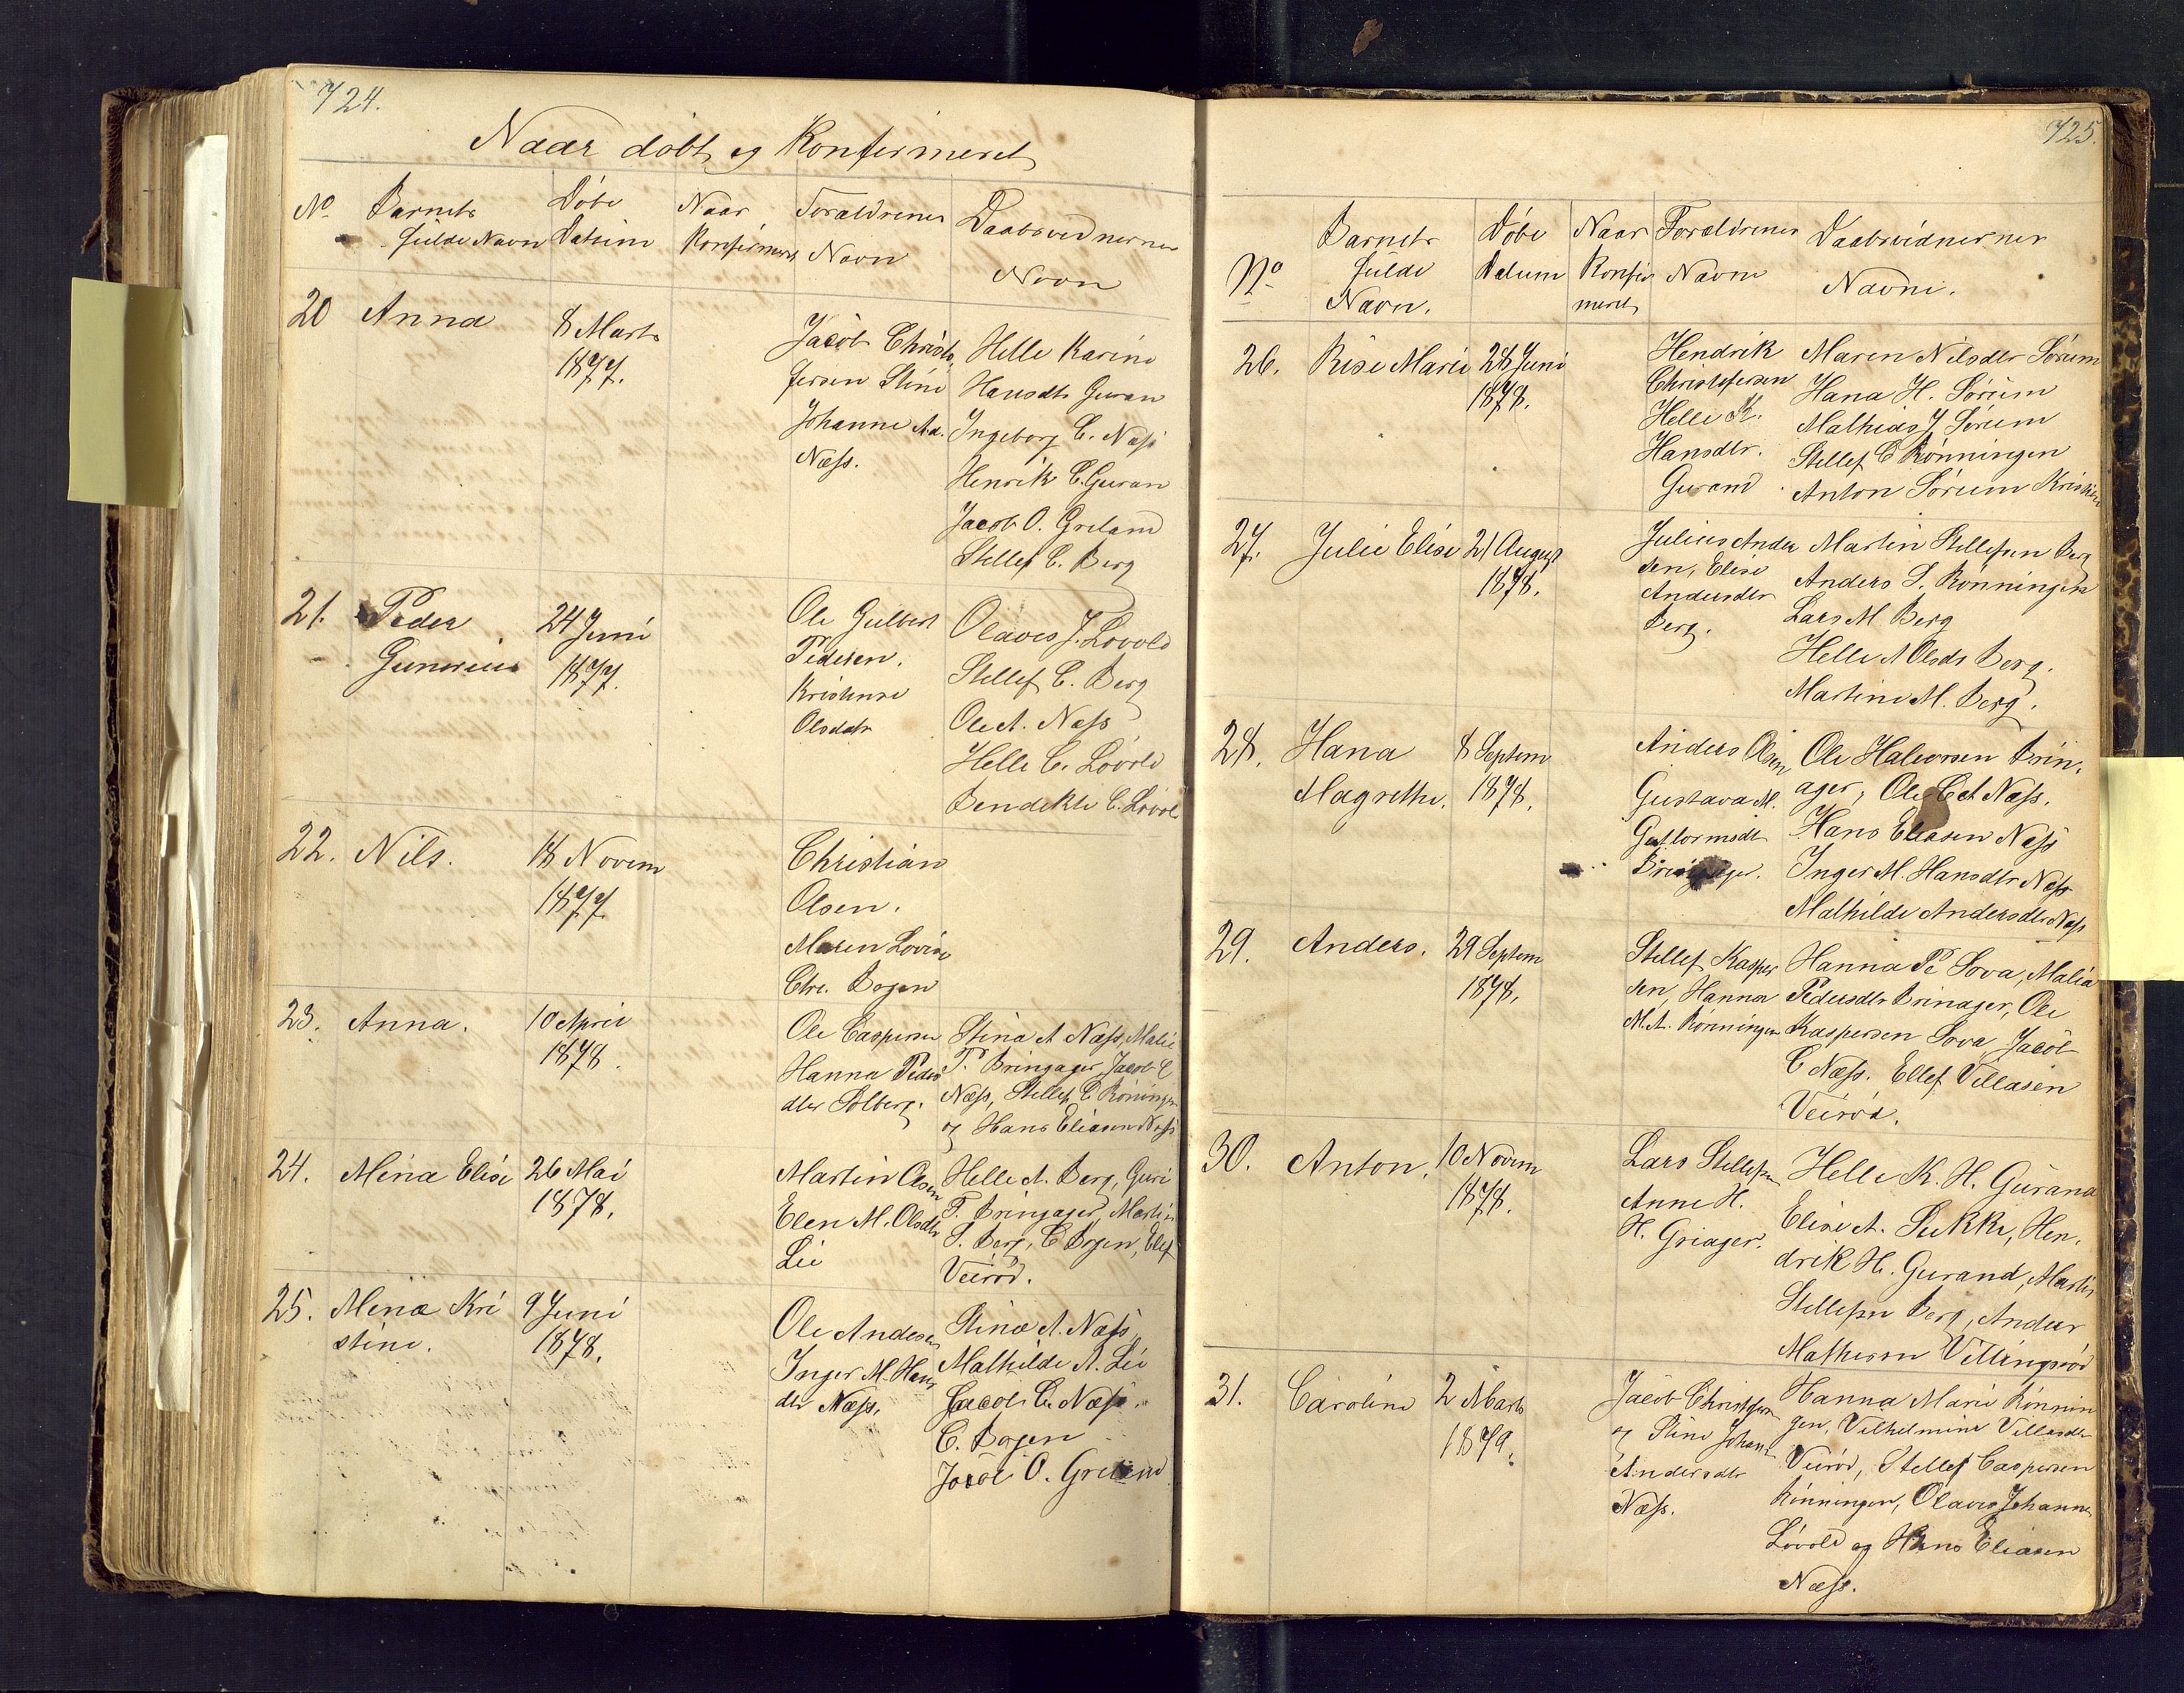 724.
Naar döbt og Konfirmeret
No Barnets fulde Navn Döbe Datum Naar Konfirmeret Forældrenes Navn Daabsvidnernes Navn
20 Anna 8 Marts 1877. Jacob Christo
fersen Stine
Johanne A.d.
Næss.
Helle Karine
Hansdtr Guran
Ingeborg C. Næss
Henrik C. Guran
Jacob O. Greland
Stellef C. Berg
21. Peder
Gunerius
24 Juni
1877.
Ole Gulbert
Pedersen.
Kristense
Olsdatr
Olaves J. Lövold
Stellef C. Berg
Ole A. Næss
Helle C. Lövold
Bendekte C. Lövol
22. Nils. 18 Novem
1877
Christian
Olsen.
Maren Lovise
Chr. Bogen
23. Anna. 10 April
1878.
Ole Caspersen
Hanna Peders
dtr Solberg.
Stina A Næss, Malie
P. Bringager, Jacob C
Næss, Stellef C Röningen
og Hans Eliasen Næss
24. Mina Elise 26 Mai
1878.
Martin Olsen
Elen M. Olsdtr
Lie
Helle A. Berg, Guri
P. Bringager, Martin
S. Berg, C Bogen, Elef
Veiröd.
25. Mina Kri
stine.
9 Juni
1878.
Ole Andersen
Inger M. Hans
dtr Næss.
Stina A. Næss,
Mathilde A. Lie
Jacob C. Næss.
C. Bogen
Jocob O. Greland
725.
No Barnets
fulde
Navn.
Döbe
Datum
Naar
Konfir
meret
Forældrenes
Navne
Daabsvidnernes
Navne.
26. Rise Marie 28 Juni
1878.
Hendrik
Christofersen
Helle K.
Hansdtr.
Gurand
Maren Nilsdtr Sörum
Hana H. Sörum
Mathias J Sörum
Stellef C Rönningen
Anton Sörum
27. Julie Elise 21 August
1878.
Julius Ander
sen, Elese
Andersdtr
Berg.
Martin Stellefsen Berg
Anders S. Rönningen
Lars M Berg
Helle A Olsdr Berg.
Martine M. Berg.
28. Hana
Magrethe.
8 Septem
1878.
Anders Olsen
Gustava M.
Guttormsdt
Bringager.
Ole Halvorsen Brin,
ager, Ole C A Næss.
Hans Eliasen Næss
Inger M. Hansdtr Næss
Mathilde Andersdtr Næss
29. Anders. 29 Septem
1878.
Stellef Kasper
sen, Hanna
M.A. Rönningen
Hanna Pe Sova, Malia
Pedersdtr Brinager, Ole
Kaspersen Sova, Jacob
C Næss. Ellef Villasen
Veiröd.
30. Anton. 10 Novem
1878.
Lars Stellefsen
Anne H.
H. Griager.
Helle K. H. Gurana
Elise A. Sukke, Hen,
drik H. Gurand, Martin
Stellefsen Berg, Anders
Mathesen Villingsröd
31. Caroline 2 Marts
1879.
Jacob Christofersen
og Stine Johan
Andersdtr
Næss.
Hanna Marie Rönnin
gen, Vilhelmine Villasdtr
Veiröd, Stellef Caspersen
Rönningen, Olaves Johannes
Lövold og Hans Eliasen
Næss.